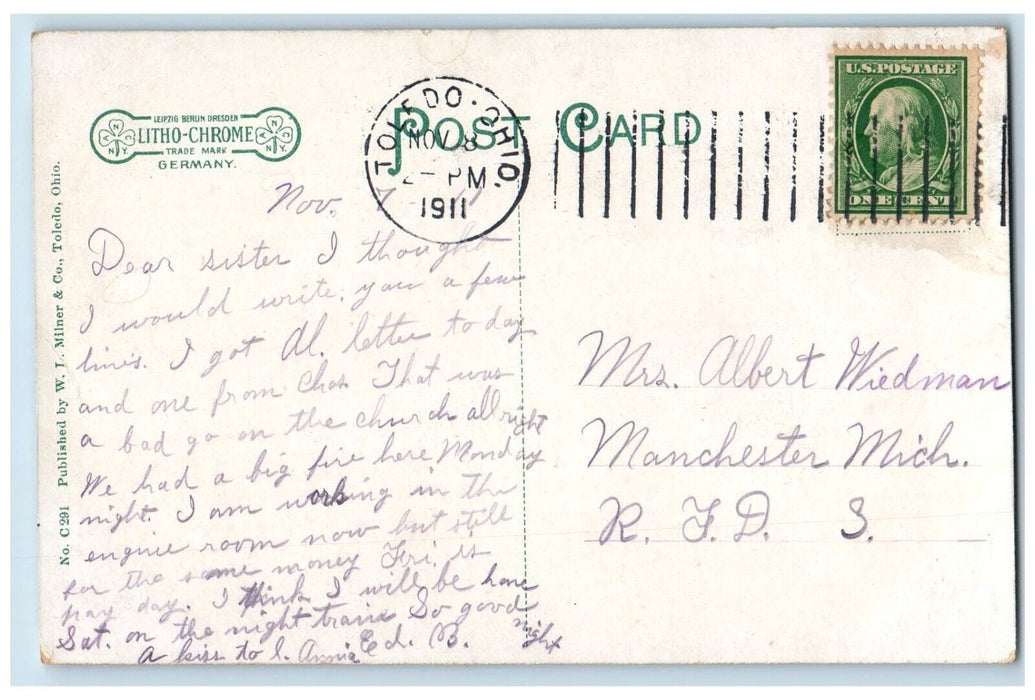 U.S. POSTAGE
ONE CENT
TOLEDO · OHIO.
NOV 8
2 - PM
1911
POST CARD
LEIPZIG BERLIN DRESDEN
LITHO-CHROME
TRADE MARK
GERMANY.
N A C N.Y.
N A C N.Y.
No. C 291 Published by W. L. Milner & Co., Toledo, Ohio.
Nov. 7
Dear sister I thought
I would write. you a few
lines. I got Al. letter to day
and one from Chas. That was
a bad go on the church allright
We had a big fire here Monday
night. I am working in the
engine room now but still
for the same money Fri. is
pay day. I think I will be home
Sat. on the night train So good
night
A kiss to l. Annie Ed. B.
Mrs. Albert Wiedman
Manchester Mich.
R. F. D. 3.